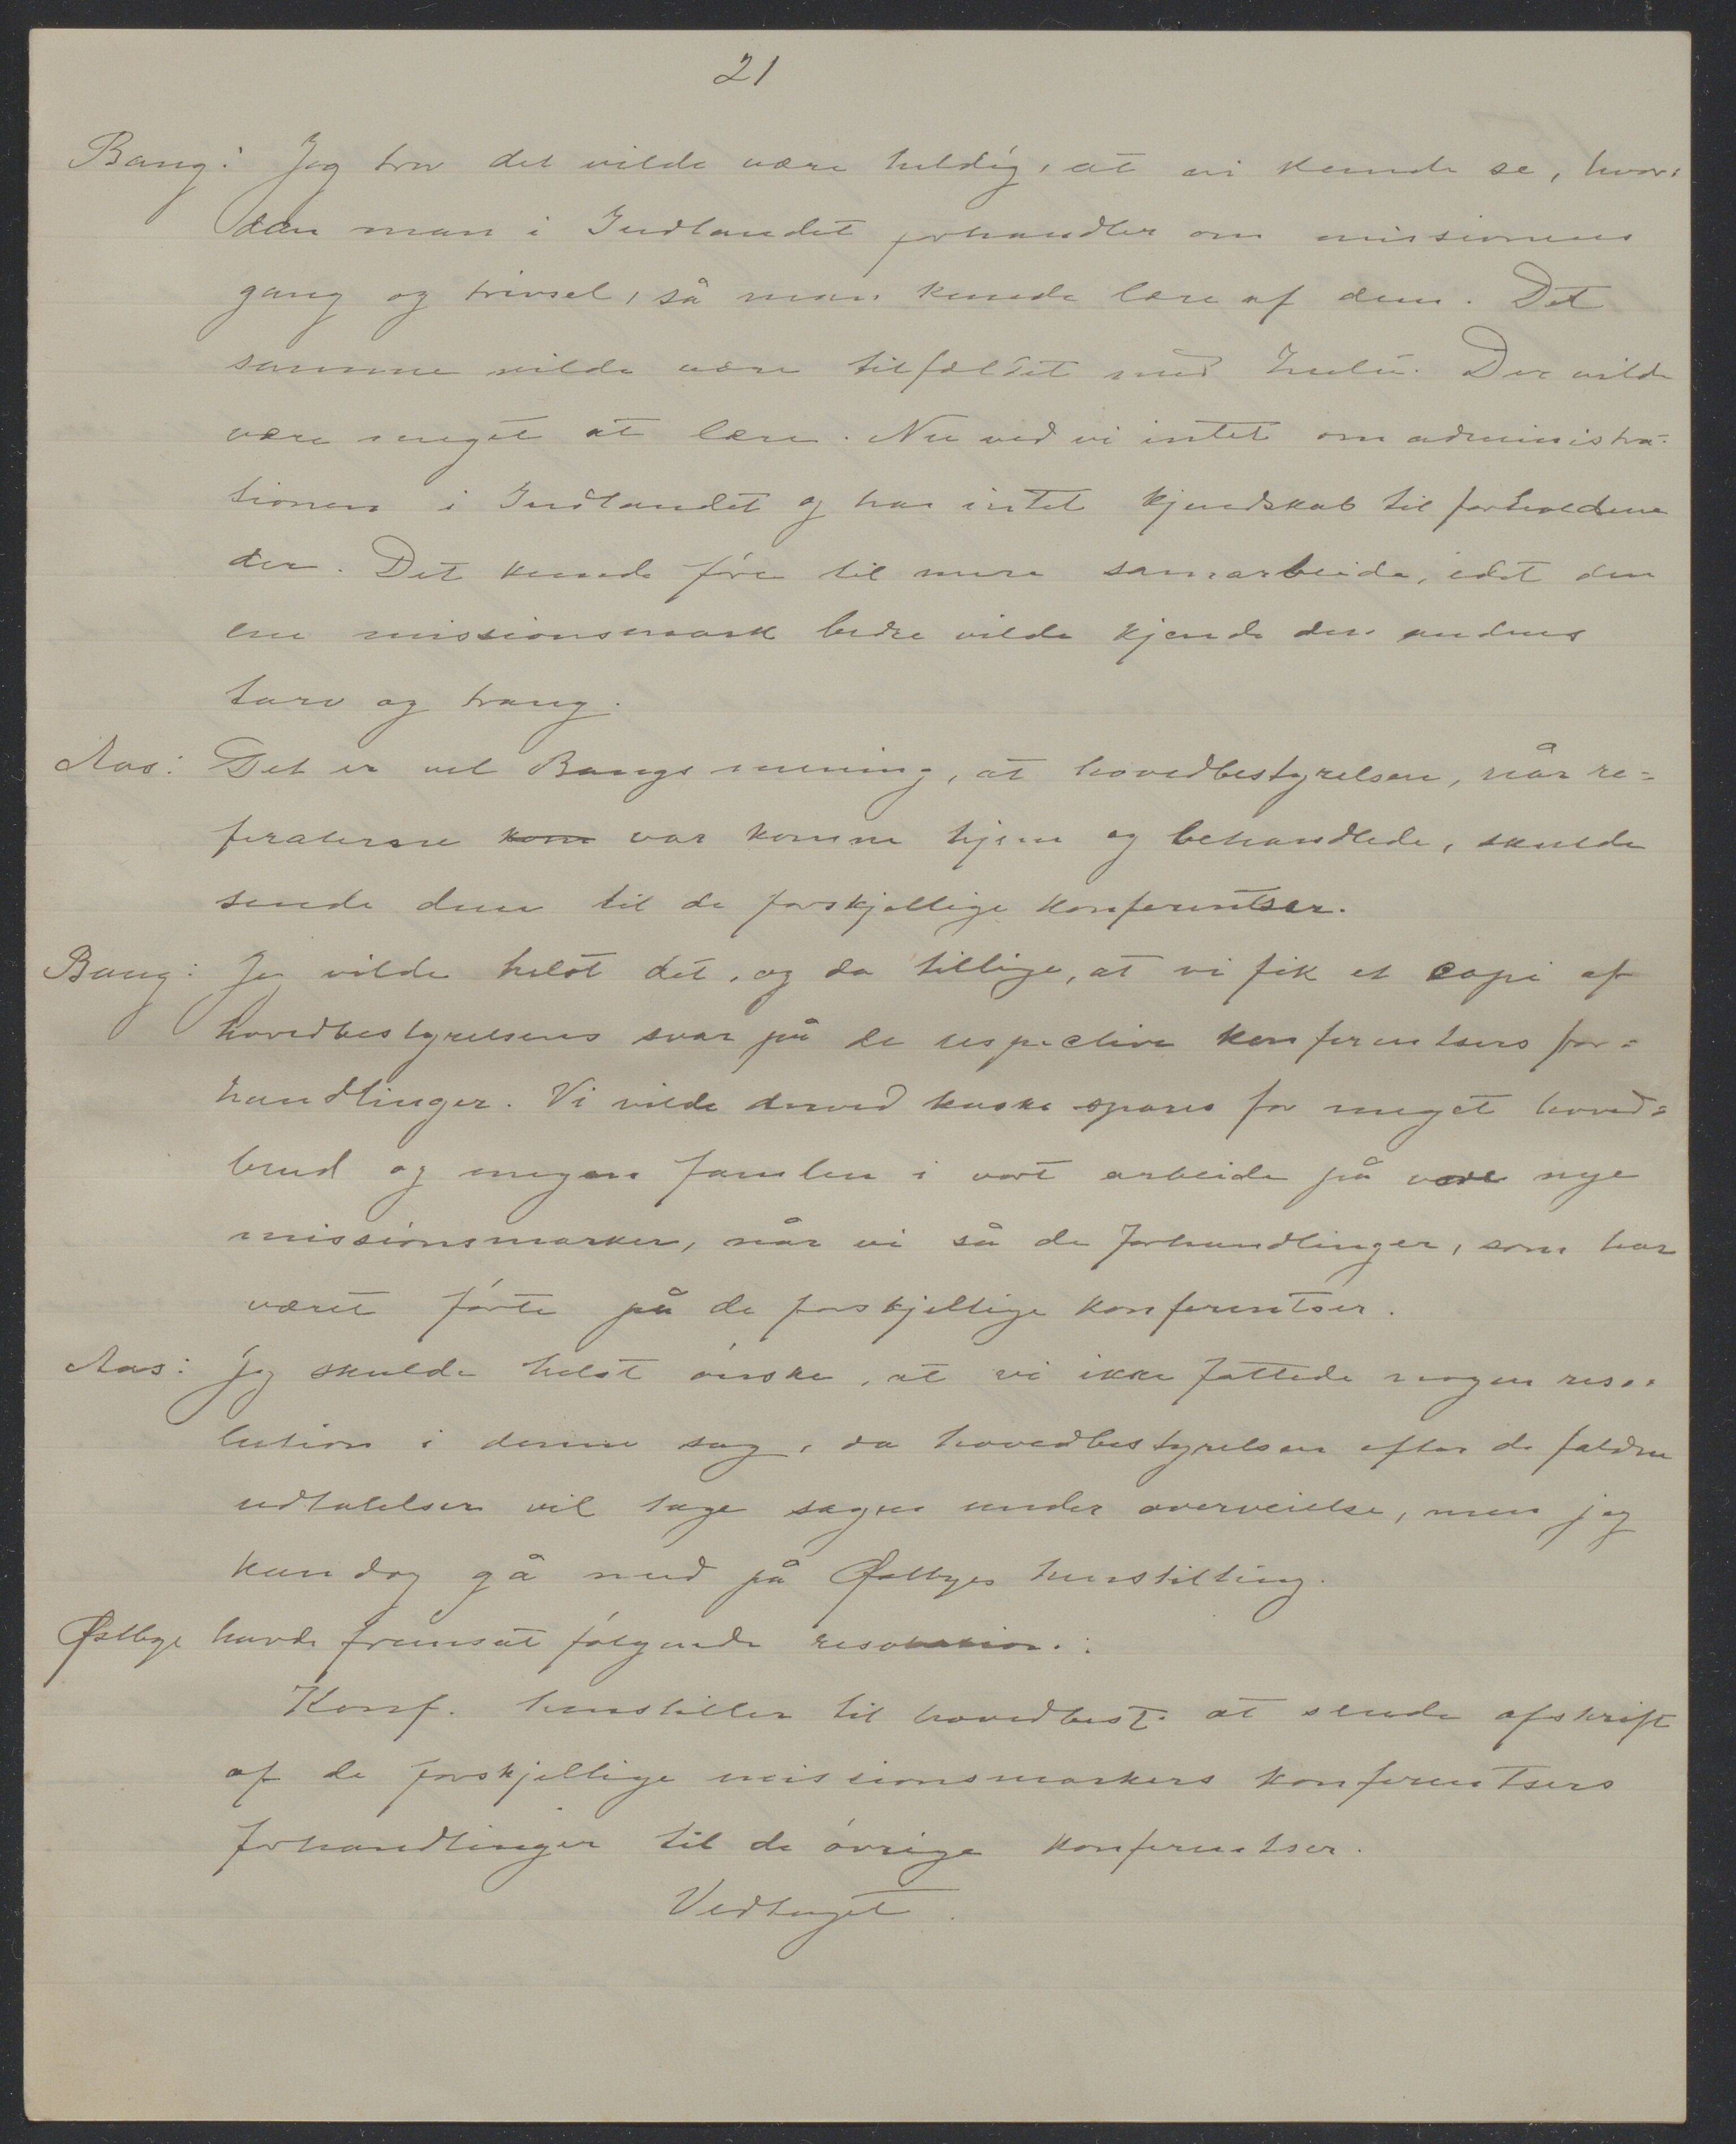 21
Bang: Jeg tror det vilde være heldig, at vi kunde se, hvor-
dan man i Indlandet forhandler om missionens
gang og trivsel, så man kunde lære af dem. Det
samme vilde være tilfældet med Zulu. Der vilde
være meget at lære. Nu ved vi intet om administra-
tionen i Indlandet og har intet kjendskab til forholdene
der. Det kunde føre til mere samarbeide, idet den
ene missionsmark bedre vilde kjende den andens
tarv og trang.
Aas: Det er vel Bangs mening, at hovedbestyrelsen, når re=
feraterne kom var komne hjem og behandlede, skulde
sende dem til de forskjellige konferentser.
Bang: Jeg vilde helst det, og da tillige, at vi fik et copi af
hovedbestyrelsens svar på de respective konferentsers for=
handlinger. Vi vilde derved kaske spares for meget hoved=
brud og megen famlen i vort arbeide på vore nye
missionsmarker, når vi så de forhandlinger, som har
været førte på de forskjellige konferentser.
Aas: Jeg skulde helst ønske, at vi ikke fattede nogen reso-
lution i denne sag, da hovedbestyrelsen efter de faldne
udtalelser vil tage sagen under overveielse, men jeg
kan dog gå med på Østbyes henstilling.
Østbye havde fremsat følgende resolution:
Konf. henstiller til hovedbest. at sende afskrift
af de forskjellige missionsmarkers konferentsers
forhandlinger til de øvrige konferentser.
Vedtaget.